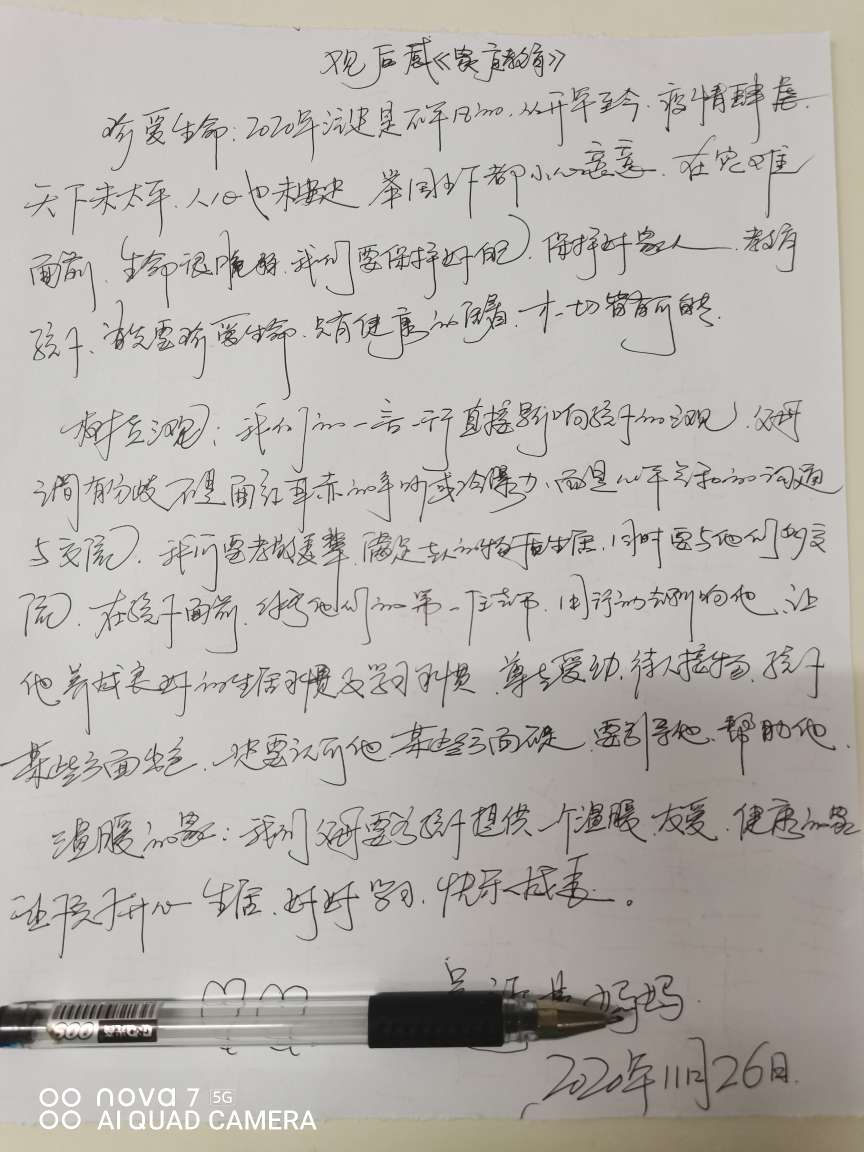 观后感《家庭教育》
珍爱生命:2020年注定是不平凡的,从开年至今,疫情肆虐.
天下未太平,人心也未安定 举国上下都小心意意,在灾难
面前,生命很脆弱,我们要保护好自己,保护好家人,教育
孩子,首先要珍爱生命,只有健康的活着,才一切皆有可能.
树立三观:我们的一言一行直接影响孩子的三观,父母
之间有分歧不是面红耳赤的争吵或冷暴力,而是心平气和的沟通
与交流,我们要孝敬长辈,满足老人的物质生活,同时要与他们多交
流,在孩子面前,做他们的第一任老师,用行动去影响他,让
他养成良好的生活习惯及学习习惯,尊老爱幼,待人接物,孩子
某些方面出色,也要认可他,某些方面不足,要引导他,帮助他.
温暖的家:我们父母要给孩子提供一个温暖,友爱,健康的家
让孩子开心生活,好好学习,快乐成长。
妈妈.
2020年11月26日.
nova 7 5G
AI QUAD CAMERA